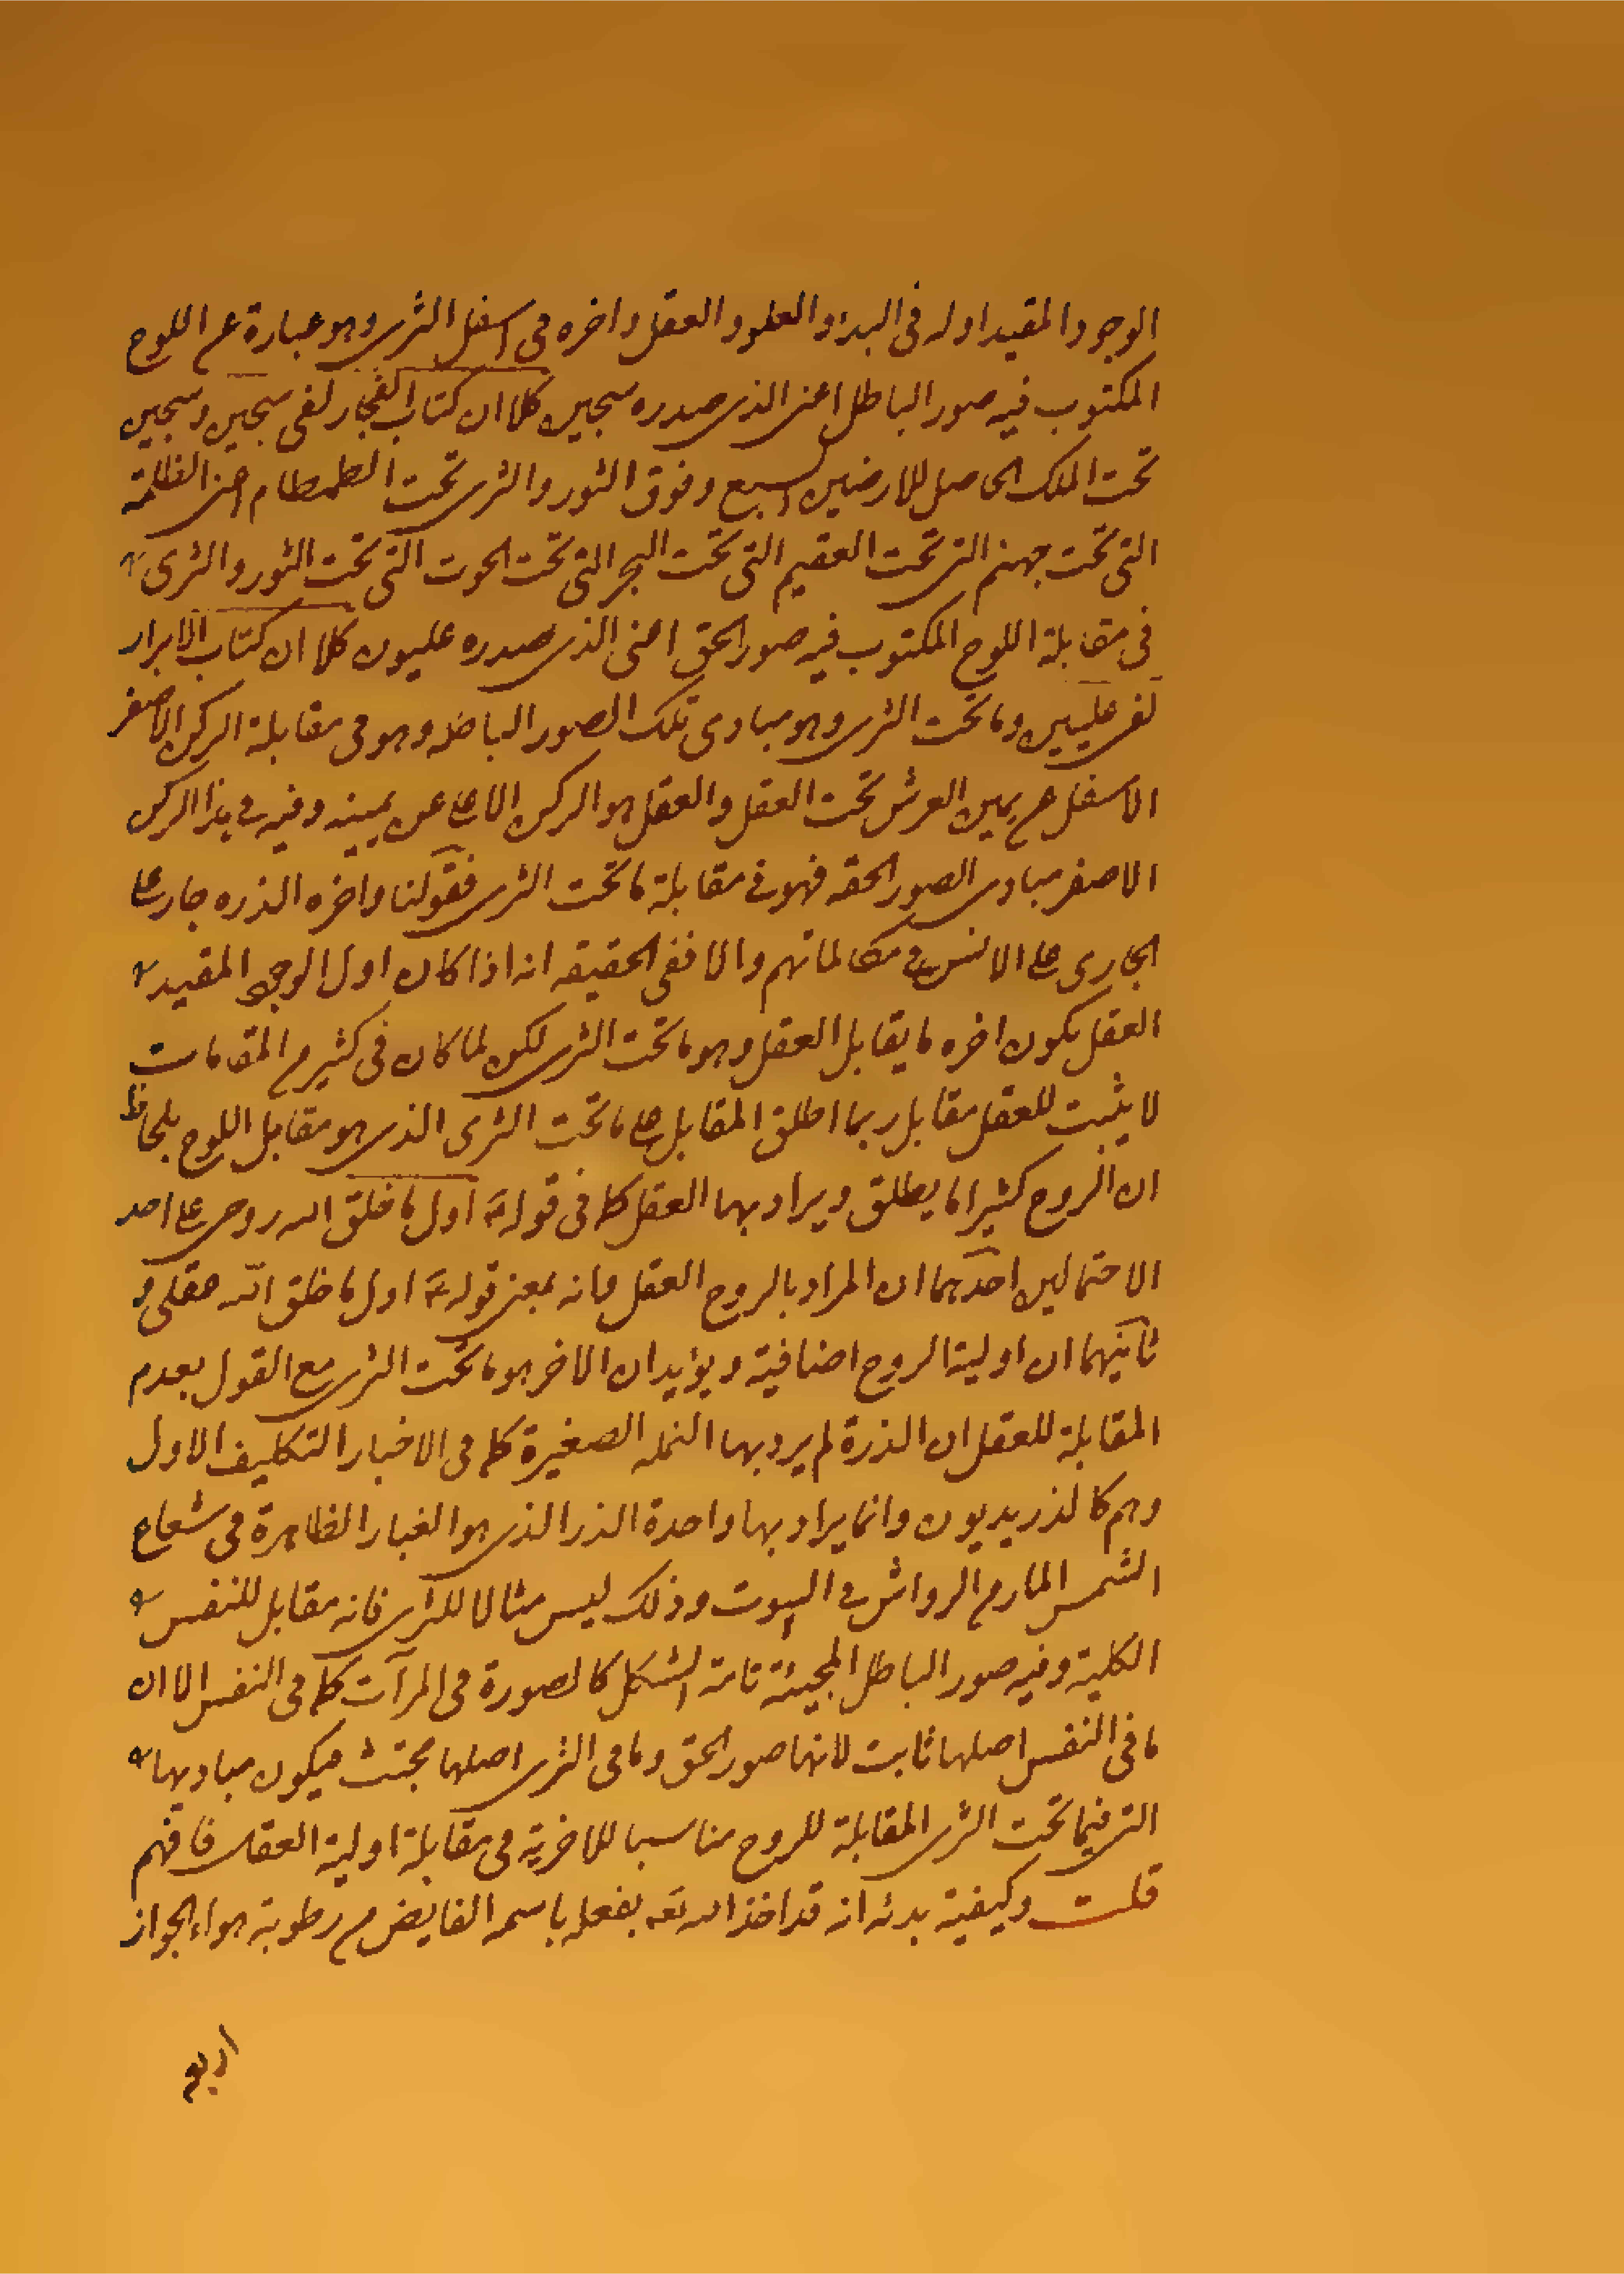 الوجود المقيد اوله فى البدء والعلو والعقل واخره فى اسفل الثرى وهو عبارة عن اللوح
المكتوب فيه صور الباطل اعنى الذى صدره سجين كلا ان كتاب الفجار لفى سجين وسجين
تحت الملك الحامل للارضين السبع وفوق الثور والثرى تحت الطمطام اعنى الظلمة
التى تحت جهنم التى تحت العقيم التى تحت البحر التى تحت الحوت التى تحت الثور والثرى
فى مقابلة اللوح المكتوب فيه صور الحق اعنى الذى صدره عليون كلا ان كتاب الابرار
لفى عليين وما تحت الثرى وهو مبادى تلك الصور الباطله وهو فى مقابلة الركن الاصفر
الاسفل عن يمين العرش تحت العقل والعقل هو الركن الاعلى عن يمينه وفيه فى هذا الركن
الاصفر مبادى الصور الحقه فهو فى مقابلة ما تحت الثرى فقولنا واخره الذره جار على
الجارى على الالسن فى مكالماتهم والا ففى الحقيقه انه اذا كان اول الوجود المقيد
العقل يكون اخره ما يقابل العقل وهو ما تحت الثرى لكن لما كان فى كثير من المقامات
لا يثبت للعقل مقابل ربما اطلق المقابل على ما تحت الثرى الذى هو مقابل اللوح بلحاظ
ان الروح كثيرا ما يطلق ويراد بها العقل كما فى قوله اول ما خلق الله روحى على احد
الاحتمالين احدهما ان المراد بالروح العقل فانه بمعنى قوله اول ما خلق الله عقلى و
ثانيهما ان اولية الروح اضافية ويؤيد ان الاخر هو ما تحت الثرى مع القول بعدم
المقابلة للعقل ان الذرة لم يرد بها النمله الصغيرة كما فى الاخبار التكليف الاول
وهم كالذر يدبون وانما يراد بها واحدة الذر الذى هو الغبار الظاهرة فى شعاع
الشمس المار من الرواشن فى البيوت وذلك ليس مثالا للثرى فانه مقابل للنفس
الكلية وفيه صور الباطل المجتثة تامة الشكل كالصورة فى المرآت كما فى النفس الا ان
ما فى النفس اصلها ثابت لانها صور الحق وما فى الثرى اصلها مجتث فيكون مباديها
التى فيما تحت الثرى المقابلة للروح مناسبا للاخرية فى مقابلة اولية العقل فافهم
قلت وكيفية بدئه انه قد اخذ الله تعه بفعله باسمه القابض من رطوبة هواء الجواز
اربع